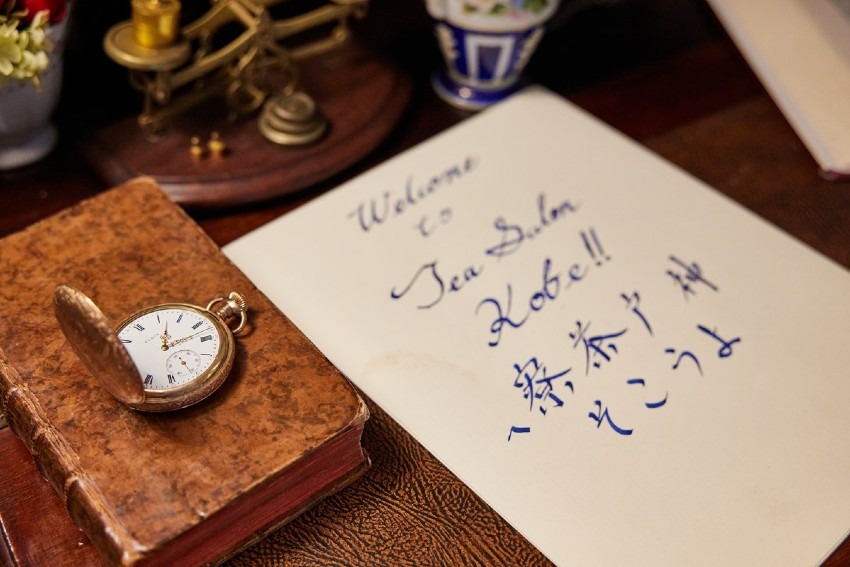 Welcome
to
Tea Salon
Kobe!!
神戸茶寮へ
ようこそ